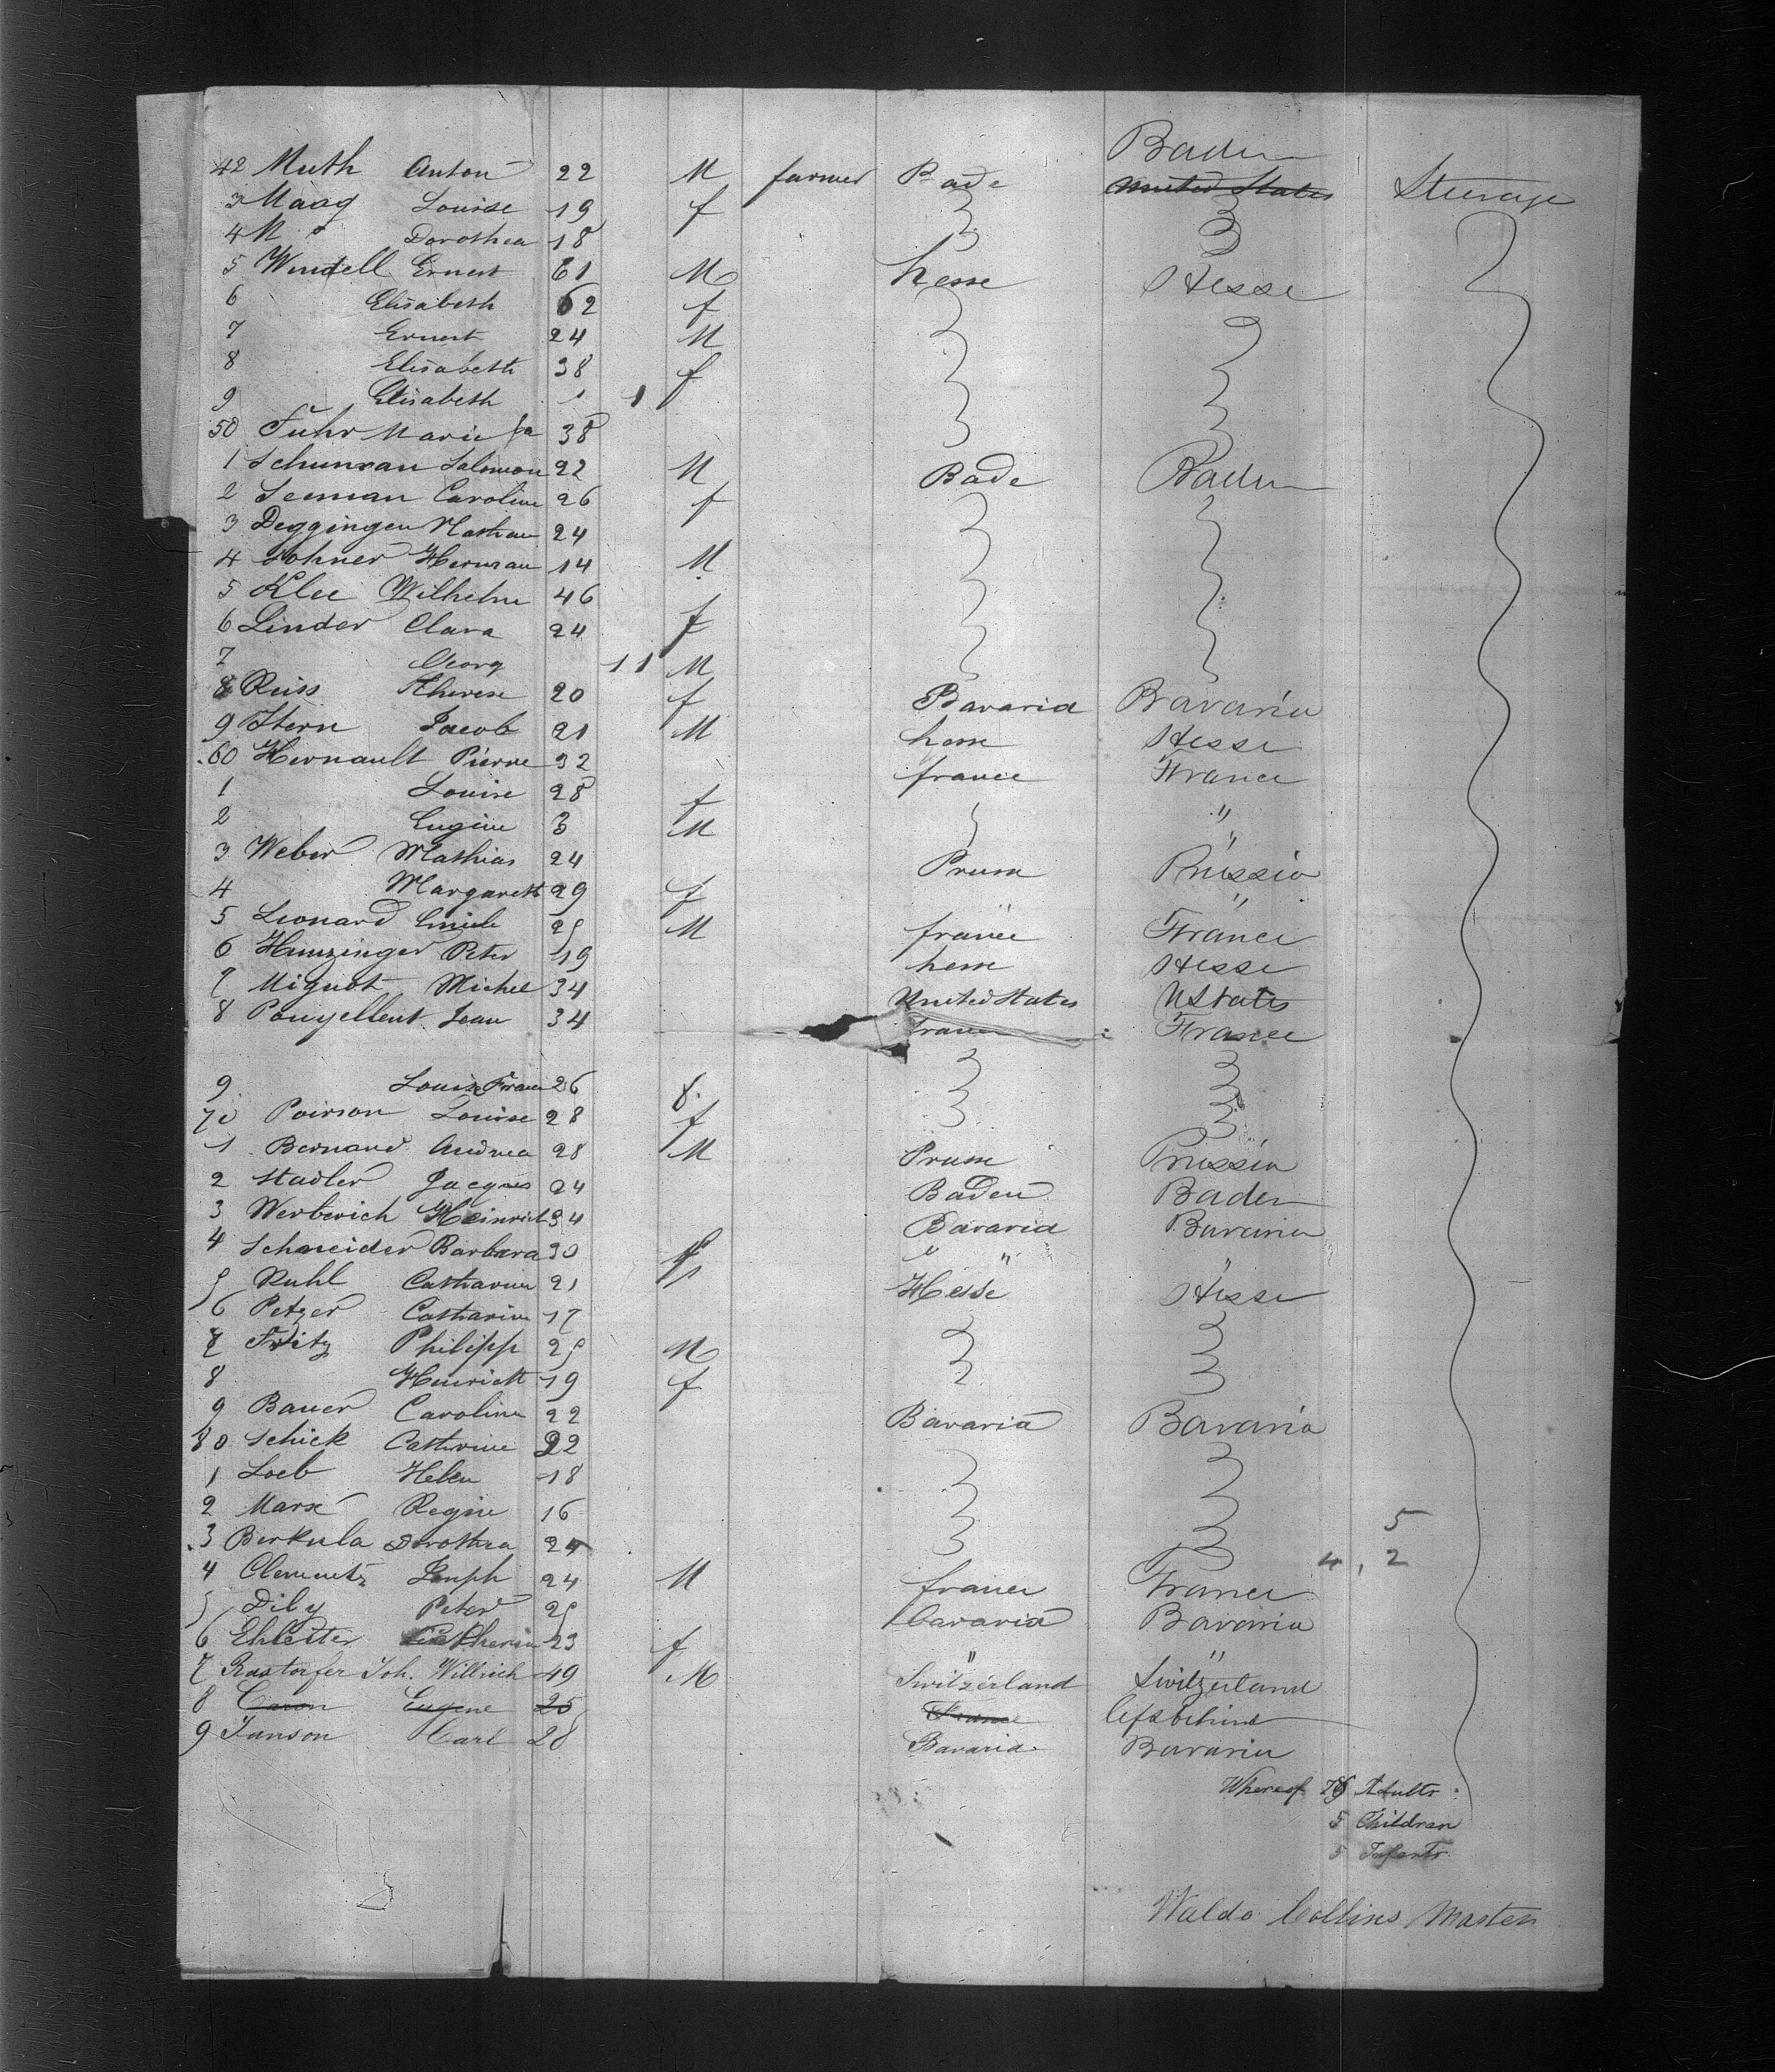 Baden
42 Muth Anton 22 M farmer Bade United States Steerage
3 Maag Louise 19 f
4 M " Dorothea 18
5 Wendell Ernest 61 M hesse Hesse
6 Elisabeth 62 f
7 Ernest 24 M
8 Elisabeth 38 f
9 Elisabeth 1 1
50 Fuhr Marie 38
1 Schunran Salomon 22 M Bade Baden
2 Seeman Caroline 26 f
3 Deggingen Nathan 24
4 Lohner Herman 14 M
5 Klee Wilhelm 46
6 Linder Clara 24 f
7 Georg 11 M
8 Reiss Therese 20 f Bavaria Bavaria
9 Stern Jacob 21 M hesse Hesse
60 Hernault Pierre 32 france France
1 Louise 28 f
2 Eugine 3 M "
3 Weber Mathias 24 Pruss Prussia
4 Margareth 29 f " "
5 Leonard Emile 25 M france France
6 Hunzinger Peter 19 hesse Hesse
7 Mignot Michel 34 United States U States
8 Pouyellent Jean 34 france France
9 Louise Frau 26 f.
70 Poirson Louise 28 f
1 Bernand Andrea 28 M Pruss Prussia
2 Stadler Jacques 24 Baden Baden
3 Werberich Heinrich 34 Bavaria Bavaria
4 Schneider Barbara 30 f " " "
5 Ruhl Catharine 21 Hesse Hesse
6 Petzer Catharine 17
7 Fritz Philipp 25 M
8 Henriett 19 f
9 Bauer Caroline 22 Bavaria Bavaria
80 Schick Cathrine 22
1 Loeb Helen 18
2 Marx Regine 16 5
3 Berkula Dorothea 24 4, 2
4 Clementz Joseph 24 M france France
5 Dily Peter 25 bavaria Bavaria
6 Ehlester Catherin 23 f " "
7 Rastorfer Joh. Willrich 49 M Switzerland Switzerland
8 Caron Eugene 25 France left behind
9 Janson Carl 28 Bavaria Bavaria
Whereof 76 Adults
5 Children
5 Infants
Waldo Collins Master